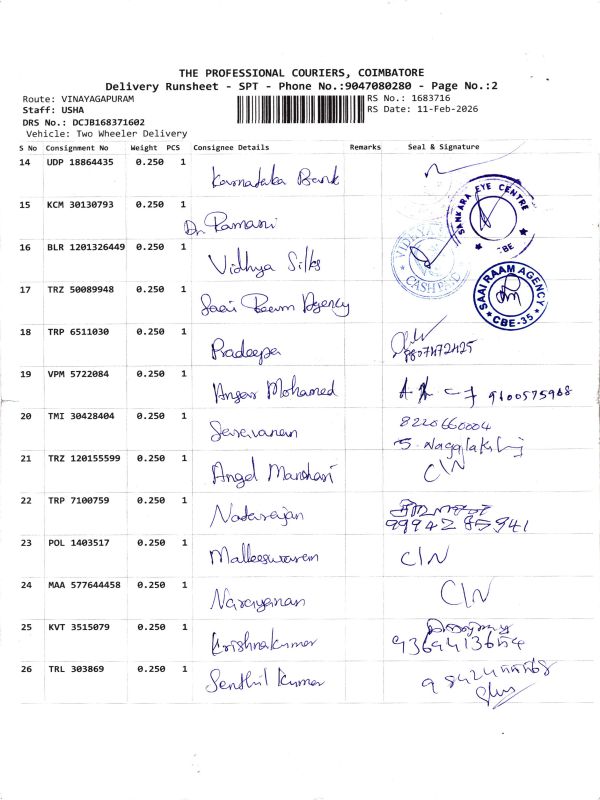 THE PROFESSIONAL COURIERS, COIMBATORE
Delivery Runsheet - SPT - Phone No.:9047080280 - Page No.:2
Route: VINAYAGAPURAM
RS No.: 1683716
Staff: USHA
RS Date: 11-Feb-2026
DRS No.: DCJB168371602
Vehicle: Two Wheeler Delivery
S No Consignment No Weight PCS Consignee Details Remarks Seal & Signature
14 UDP 18864435 0.250 1 Karnataka Bank
SANKARA EYE CENTRE
CBE
15 KCM 30130793 0.250 1 Dr. Ramani
16 BLR 1201326449 0.250 1 Vidhya Silks
17 TRZ 50089948 0.250 1 Saai Raam Agency
SAAI RAAM AGENCY
CBE-35
18 TRP 6511030 0.250 1 Pradeepa
19 VPM 5722084 0.250 1 Ansar Mohamed 9600575968
20 TMI 30428404 0.250 1 Saravanan 8220660004
S. Nagalakshmi
21 TRZ 120155599 0.250 1 Angel Manohari C/N
22 TRP 7100759 0.250 1 Natarajan
9994285941
23 POL 1403517 0.250 1 Malleeswaram C/N
24 MAA 577644458 0.250 1 Narayanan C/N
25 KVT 3515079 0.250 1 Krishnakumar
9369413654
26 TRL 303869 0.250 1 Senthil Kumar